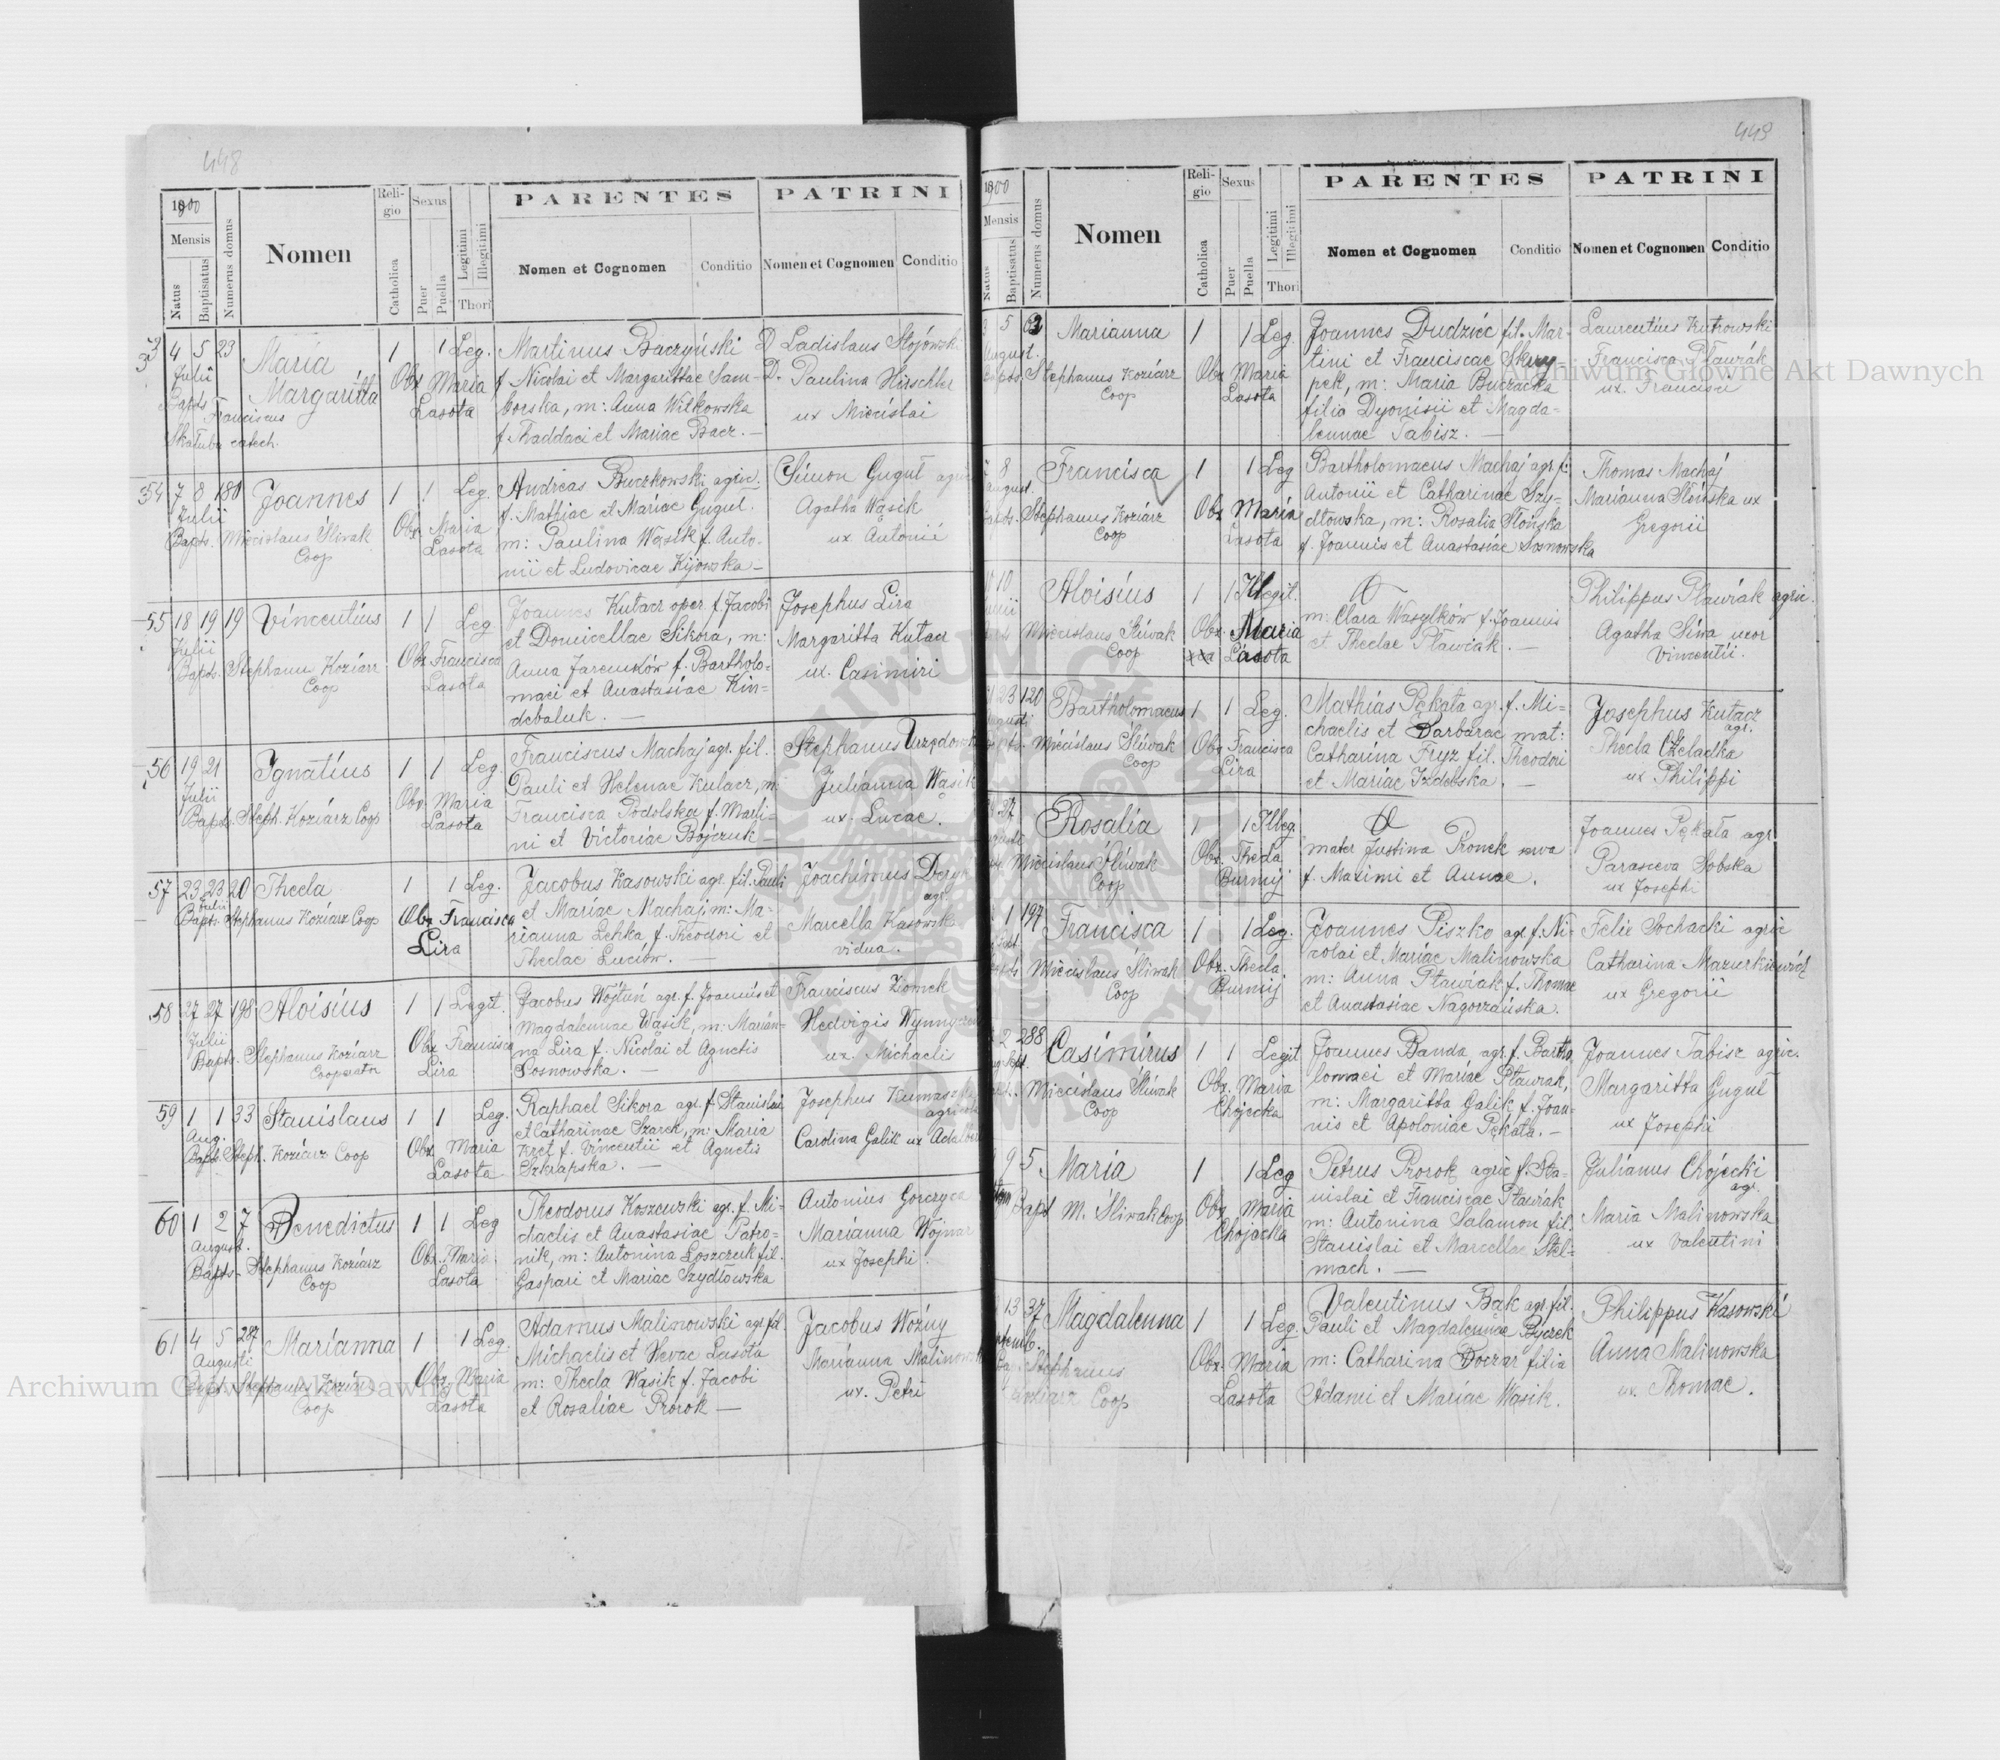 448
1900
Mensis
Natus
Baptisatus
Numerus domus
Nomen
Religio
Catholica
Sexus
Puer
Puella
Legitimi
Illegitimi
Thori
PARENTES
Nomen et Cognomen
Conditio
PATRINI
Nomen et Cognomen
Conditio
53
4 5 23
Julii
Bapts Franciscus
Skałuba catech.
Maria
Margaritta
1 1 Leg.
Obx Maria
Lasota
Martinus Baczyński
f. Nicolai et Margarittae Sam-
borska, m: Anna Witkowska
f. Thaddaei et Mariae Bacz. —
D. Ladislaus Stójowski
D. Paulina Hirschler
ux Miecislai
54 7 8 180
Julii
Bapts. Miecislaus Śliwak
Coop
Joannes
1 1 Leg.
Obx Maria
Lasota
Andreas Buczkowski agric.
f. Mathiae et Mariae Guguł.
m: Paulina Wąsik f. Anto-
nii et Ludovicae Kijowska —
Simon Guguł agric
Agatha Wąsik
ux Antonii
55 18 19 19
Julii
Bapts. Stephanus Koziarz
Coop
Vincentius
1 1 Leg
Obx Francisca
Lasota
Joannes Kutacz oper. f. Jacobi
et Domicellae Sikora, m:
Anna Jaremków f. Bartholo-
maei et Anastasiae Kin-
debaluk. —
Josephus Lira
Margaritta Kutacz
ux. Casimiri
56 19 21
Julii
Bapts. Steph. Koziarz Coop
Ignatius
1 1 Leg
Obx. Maria
Lasota
Franciscus Machaj agr. fil.
Pauli et Helenae Kutacz, m.
Francisca Podolska f. Marti-
ni et Victoriae Bojczuk —
Stephanus Urzędowski
Julianna Wąsik
ux. Lucae.
57 23 23 20
Julii
Bapts. Stephanus Koziarz Coop
Thecla
1 1 Leg.
Obx Francisca
Lira
Jacobus Kasowski agr. fil. Pauli
et Mariae Machaj m: Ma-
rianna Lehka f. Theodori et
Theclae Luciów. —
Joachimus
agr.
Marcella Kasowsk
vidua.
58 27 27 198
Julii
Bapts. Stephanus Koziarz
Cooperator
Aloisius
1 1 Legit.
Obx Francisca
Lira
Jacobus Wojtuń agr. f. Joannis et
Magdalennae Wąsik, m: Marian-
na Lira f. Nicolai et Agnetis
Sosnowska. —
Franciscus Ziomek
Hedvigis
ux. Michaelis
59 1 1 33
Aug.
Bapts. Steph. Koziarz Coop
Stanislaus
1 1 Leg.
Obx. Maria
Lasota
Raphael Sikora agr. f. Stanislai
et Catharinae Szarek, m: Maria
Kret f. Vincentii et Agnetis
Szkrapska. —
Josephus
agricola
Carolina Galik ux Adalberti
60 1 2 7
August.
Bapts - Stephanus Koziarz
Coop
Benedictus
1 1 Leg
Obx. Maria
Lasota
Theodorus Koszewski agr. f. Mi-
chaelis et Anastasiae Patro-
nik, m: Antonina Łoszczuk fil.
Gaspari et Mariae Szydłowska
Antonius Gorczyca
Marianna Wojnar
ux Josephi
61 4 5 287
Augusti
Bapts. Stephanus Koziarz
Coop
Marianna
1 1 Leg
Obx. Maria
Lasota
Adamus Malinowski agr. fil.
Michaelis et Hevae Lasota
m: Thecla Wąsik f. Jacobi
et Rosaliae Prorok —
Jacobus Woźny
Marianna Malinowsk
ux. Petri
449
1900
Mensis
Natus
Baptisatus
Numerus domus
Nomen
Religio
Catholica
Sexus
Puer
Puella
Legitimi
Illegitimi
Thori
PARENTES
Nomen et Cognomen
Conditio
PATRINI
Nomen et Cognomen
Conditio
5
August.
Bapts. Stephanus Koziarz
Coop
Marianna
1 1 Leg.
Obx Maria
Lasota
Joannes Dudzięc fil. Mar-
tini et Franciscae
pek, m: Maria Buczacka
filia Dyonisii et Magda-
lennae Tabisz. —
Laurentius Kutrowski
Francisca Pławiak
ux. Francisci
8
August.
Bapts. Stephanus Koziarz
Coop
Francisca
1 1 Leg
Obx Maria
Lasota
Bartholomaeus Machaj agr. f:
Antonii et Catharinae Szy-
dłowska, m: Rosalia Słońska
f. Joannis et Anastasiae Sosnowska
Thomas Machaj
Marianna Słońska ux
Gregorii
10
Miecislaus Śliwak
Coop
Aloisius
1 1 Illegit.
Obx. Maria
Lasota
m: Clara Wasylków f. Joannis
et Theclae Pławiak. —
Philippus Pławiak agric.
Agatha Siwa uxor
Vincentii.
23 120
Augusti
Miecislaus Śliwak
Coop
Bartholomaeus
1 1 Leg.
Obx Francisca
Lira
Mathias Pękała agr. f. Mi-
chaelis et Barbarae mat:
Catharina Fryz fil. Theodori
et Mariae Izdebska. —
Josephus Kutacz
agr.
Thecla Czeladka
ux Philippi
27
Miecislaus Śliwak
Coop
Rosalia
1 1 Illeg.
Obx. Thecla
Burmij
mater Justina Pronek serva
f. Maximi et Annae.
Joannes Pękała agr.
Parasceva Sobska
ux Josephi
1 197
Sept
Bapts Miecislaus Śliwak
Coop
Francisca
1 1 Leg.
Obx. Thecla
Burmij
Joannes Piszko agr. f. Ni-
colai et Mariae Malinowska
m: Anna Pławiak f. Thomae
et Anastasiae Nagorzańska.
Felix Sochacki agric
Catharina Mazurkiewicz
ux Gregorii
2 288
Sept.
Miecislaus Śliwak
Coop
Casimirus
1 1 Legit
Obx. Maria
Chojecka
Joannes Banda agr. f. Bartho
lomaei et Mariae Pławiak,
m: Margaritta Galik f. Joan-
nis et Apoloniae Pękała. —
Joannes Tabisz agric.
Margaritta Guguł
ux Josephi
9 5
Bapt M. Śliwak Coop
Maria
1 1 Leg
Obx Maria
Chojacka
Petrus Prorok agric f. Sta-
nislai et Franciscae Pławiak
m: Antonina Salamon fil.
Stanislai et Marcellae Stel-
mach. —
Julianus Chojecki
agr.
Maria Malinowska
ux Valentini
13 37
Stephanus
Koziarz Coop
Magdalenna
1 1 Leg.
Obx. Maria
Lasota
Valentinus Bąk agr. fil.
Pauli et Magdalennae Byczek
m: Catharina Boczar filia
Adami et Mariae Wąsik.
Philippus Kasowski
Anna Malinowska
ux. Thomae.
Archiwum Główne Akt Dawnych
Archiwum Główne Akt Dawnych